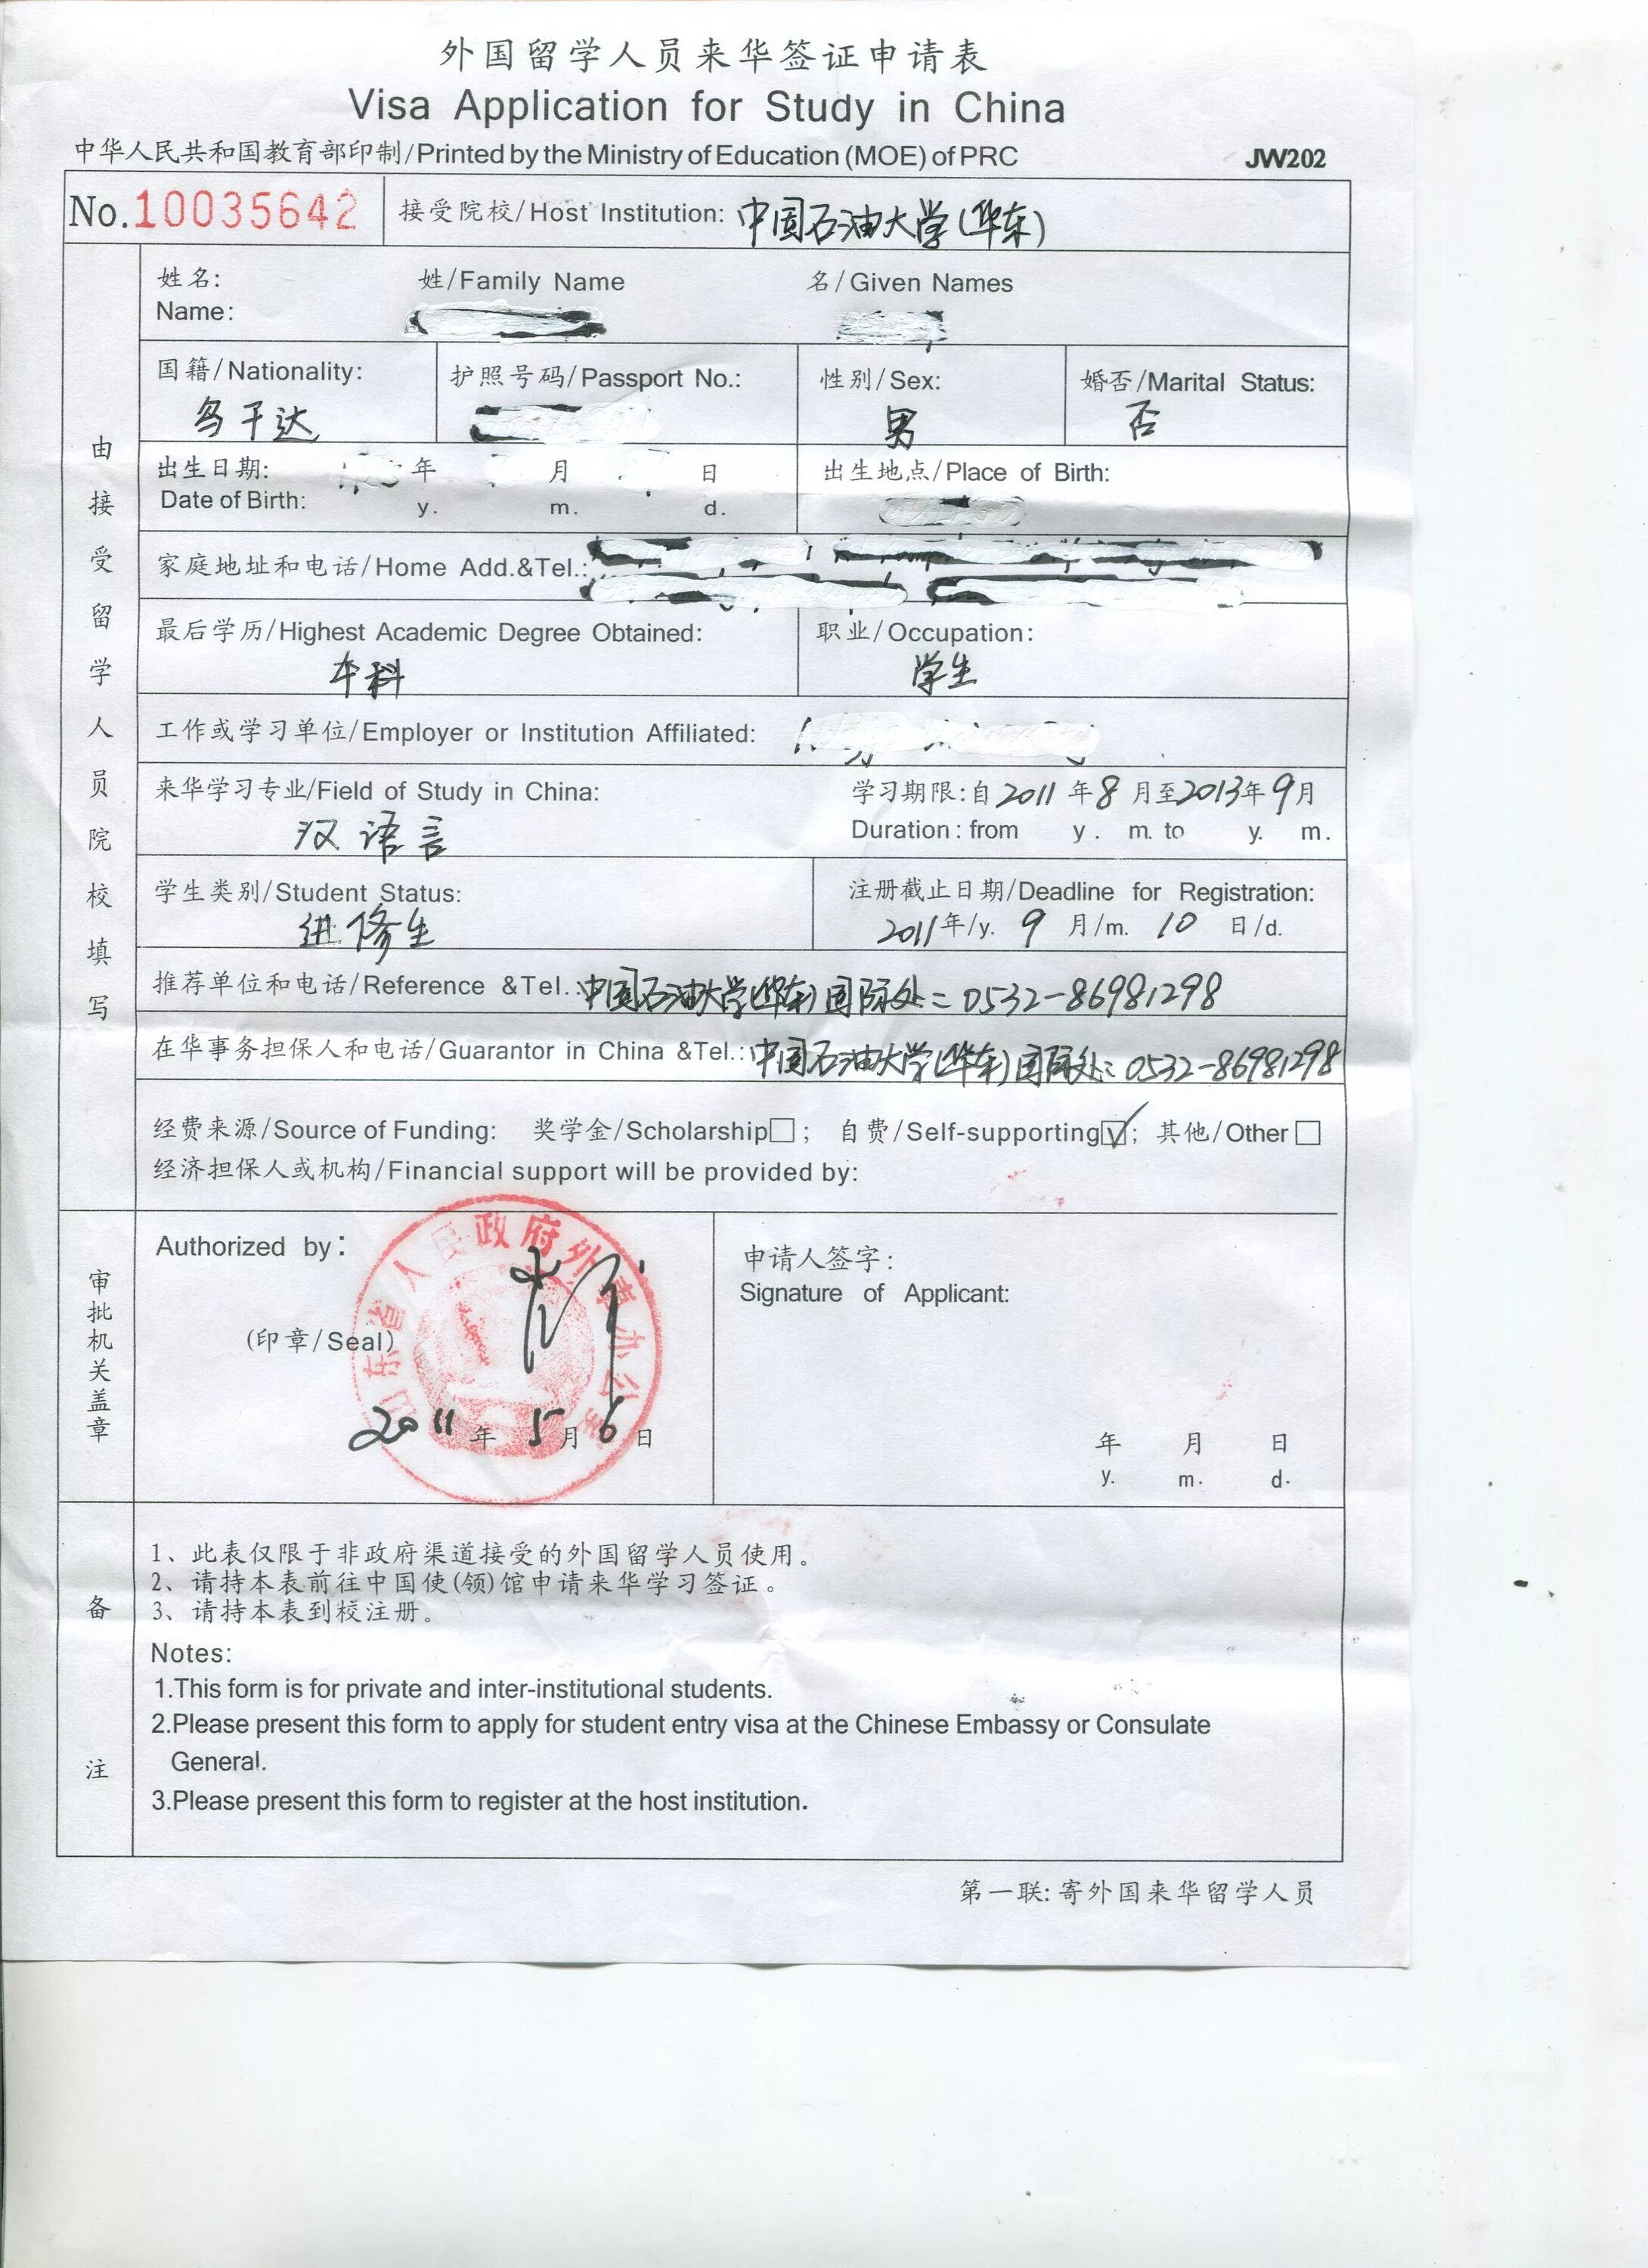 外国留学人员来华签证申请表
Visa Application for Study in China
中华人民共和国教育部印制/Printed by the Ministry of Education (MOE) of PRC JW202
No.10035642 接受院校/Host Institution: 中国石油大学(华东)
由接受留学人员院校填写
姓名: 姓/Family Name 名/Given Names
Name:
国籍/Nationality: 护照号码/Passport No.: 性别/Sex: 婚否/Marital Status:
乌干达 男 否
出生日期: 年 月 日 出生地点/Place of Birth:
Date of Birth: y. m. d.
家庭地址和电话/Home Add.&Tel.:
最后学历/Highest Academic Degree Obtained: 职业/Occupation:
本科 学生
工作或学习单位/Employer or Institution Affiliated:
来华学习专业/Field of Study in China: 学习期限:自2011年8月至2013年9月
汉语言 Duration: from y. m. to y. m.
学生类别/Student Status: 注册截止日期/Deadline for Registration:
进修生 2011年/y. 9月/m. 10日/d.
推荐单位和电话/Reference &Tel.:中国石油大学(华东)国际处:0532-86981298
在华事务担保人和电话/Guarantor in China &Tel.:中国石油大学(华东)国际处:0532-86981298
经费来源/Source of Funding: 奖学金/Scholarship□; 自费/Self-supporting☑; 其他/Other□
经济担保人或机构/Financial support will be provided by:
审批机关盖章
Authorized by:
山东省人民政府外事办公室
(印章/Seal)
2011年5月6日
申请人签字:
Signature of Applicant:
年 月 日
y. m. d.
备注
1、此表仅限于非政府渠道接受的外国留学人员使用。
2、请持本表前往中国使(领)馆申请来华学习签证。
3、请持本表到校注册。
Notes:
1.This form is for private and inter-institutional students.
2.Please present this form to apply for student entry visa at the Chinese Embassy or Consulate
General.
3.Please present this form to register at the host institution.
第一联:寄外国来华留学人员